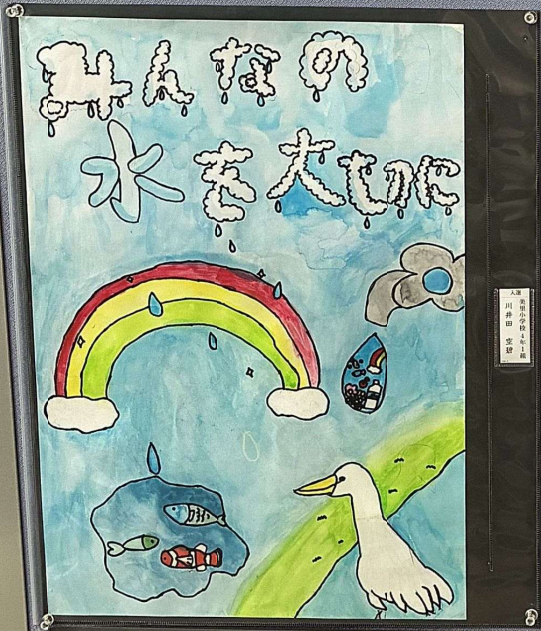 みんなの
水を大切に
入選
美里小学校 4年1組
川井田 空碧